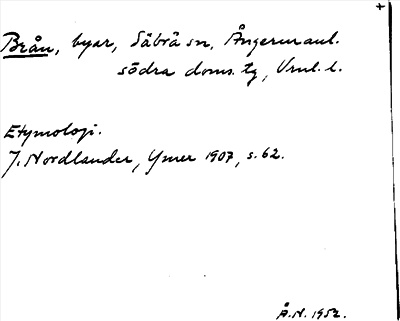 +
Brån, byar, Säbrå sn, Ångermanl.
södra doms. tg, Vnl. l.
Etymologi.
J. Nordlander, Ymer 1907, s. 62.
Å.N. 1952.